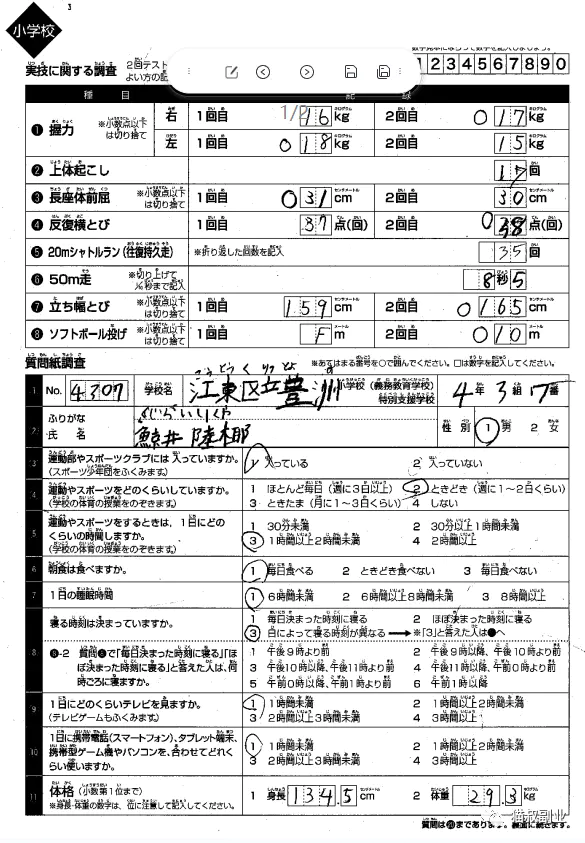 3
小学校
実技に関する調査
2回テスト
よい方の記
1 2 3 4 5 6 7 8 9 0
1/2
種 目 記 録
❶ 握力 ※小数点以下は切り捨て 右 1回目 16 kg 2回目 017 kg
左 1回目 018 kg 2回目 15 kg
❷ 上体起こし 回
❸ 長座体前屈 ※小数点以下は切り捨て 1回目 031 cm 2回目 30 cm
❹ 反復横とび 1回目 37 点(回) 2回目 038 点(回)
❺ 20mシャトルラン(往復持久走) ※折り返した回数を記入 35 回
❻ 50m走 ※切り上げて1/10秒まで記入 8秒5
❼ 立ち幅とび ※小数点以下は切り捨て 1回目 159 cm 2回目 0165 cm
❽ ソフトボール投げ ※小数点以下は切り捨て 1回目 F m 2回目 010 m
質問紙調査 ※あてはまる番号を○で囲んでください。□は数字を記入してください。
1 No. 4307 学校名 江東区立豊洲 小学校(義務教育学校) 特別支援学校 4年 3組 17番
2 ふりがな
氏 名 鯨井 陸椰 性別 1 男 2 女
3 運動部やスポーツクラブには入っていますか。 1 入っている 2 入っていない
(スポーツ少年団をふくみます)
4 運動やスポーツをどのくらいしていますか。 1 ほとんど毎日(週に3日以上) 2 ときどき(週に1〜2日くらい)
(学校の体育の授業をのぞきます) 3 ときたま(月に1〜3日くらい) 4 しない
5 運動やスポーツをするときは、1日にどの 1 30分未満 2 30分以上1時間未満
くらいの時間しますか。 3 1時間以上2時間未満 4 2時間以上
(学校の体育の授業をのぞきます)
6 朝食は食べますか。 1 毎日食べる 2 ときどき食べない 3 毎日食べない
7 1日の睡眠時間 1 6時間未満 2 6時間以上8時間未満 3 8時間以上
8 寝る時刻は決まっていますか。 1 毎日決まった時刻に寝る 2 ほぼ決まった時刻に寝る
3 日によって寝る時刻が異なる ➞ ※「3」と答えた人は❾へ
❽-2 質問❽で「毎日決まった時刻に寝る」「ほ 1 午後9時より前 2 午後9時以降、午後10時より前
ぼ決まった時刻に寝る」と答えた人は、何 3 午後10時以降、午後11時より前 4 午後11時以降、午前0時より前
時ごろに寝ますか。 5 午前0時以降、午前1時より前 6 午前1時以降
9 1日にどのくらいテレビを見ますか。 1 1時間未満 2 1時間以上2時間未満
(テレビゲームもふくみます) 3 2時間以上3時間未満 4 3時間以上
10 1日に携帯電話(スマートフォン)、タブレット端末、 1 1時間未満 2 1時間以上2時間未満
携帯型ゲーム機やパソコンを、合わせてどれく 3 2時間以上3時間未満 4 3時間以上
らい使いますか。
11 体格 (小数第1位まで) 1 身長 134.5 cm 2 体重 29.3 kg
※身長・体重の数字は、位に注意して記入してください。
猫叔副业
質問は㉑まであります。裏面に続きます。